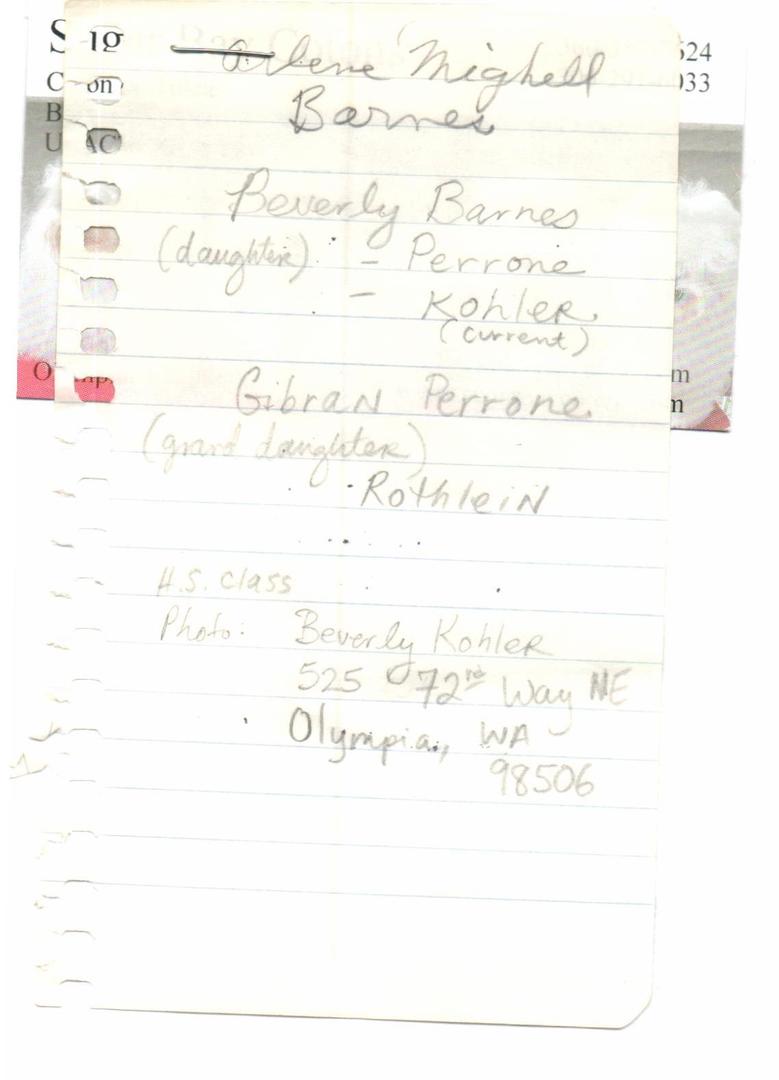 Arlene Mighell
Barnes
Beverly Barnes
(daughter) - Perrone
- Kohler
(current)
Gibran Perrone
(grand daughter)
Rothlein
H.S. class
Photo: Beverly Kohler
525 72nd Way NE
Olympia, WA
98506